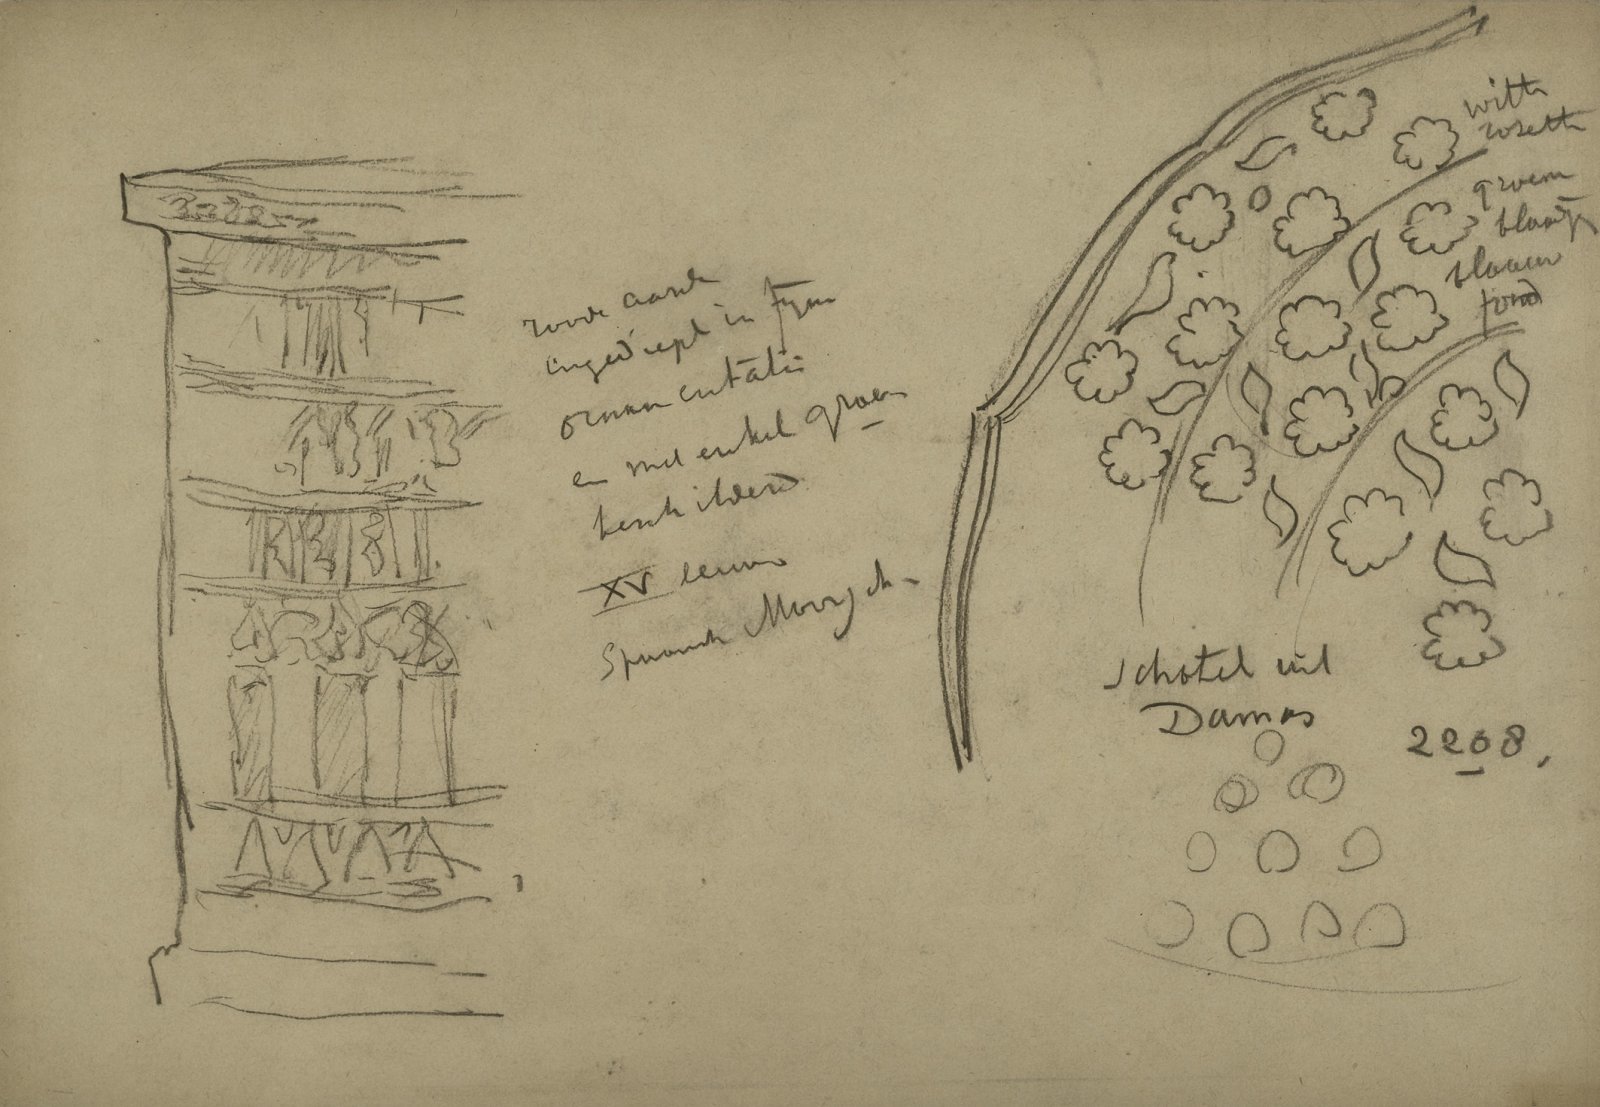 roode aarde
ingediept in fyne
ornamentatie
en met enkel groen
beschilderd
XV eeuw
Spaansch Moorsch
witte
rozette
groen
blaadje
blauw
fond
schotel uit
Damas
2208.